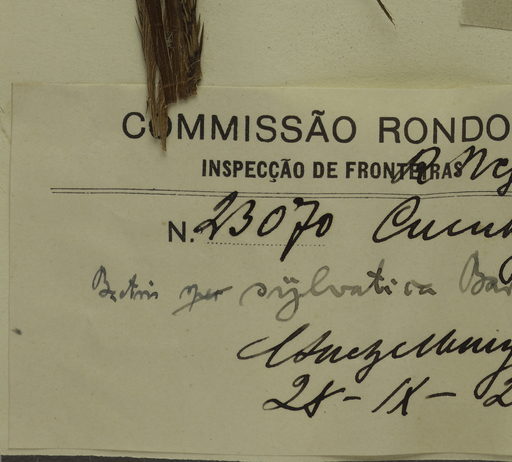 COMMISSÃO RONDO
INSPECÇÃO DE FRONTEIRAS
N. 23070
Bactris sylvatica Bar
28-IX-2